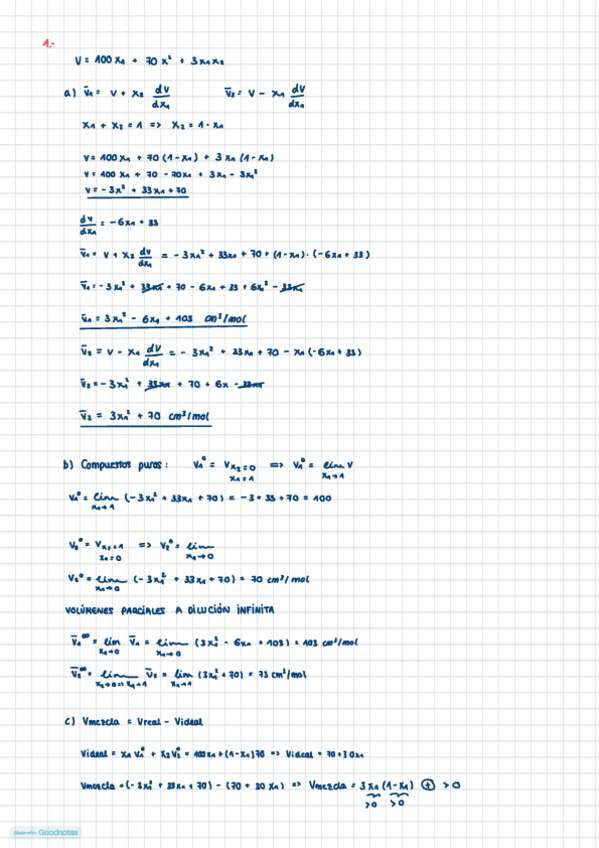 1.-
V = 100 x₁ + 70 x² + 3 x₁ x₂
a) V̄₁ = V + x₂ dV/dx₁ V̄₂ = V - x₁ dV/dx₁
x₁ + x₂ = 1 => x₂ = 1 - x₁
V = 100 x₁ + 70 (1 - x₁) + 3 x₁ (1 - x₁)
V = 100 x₁ + 70 - 70x₁ + 3x₁ - 3x₁²
V = - 3x² + 33x₁ + 70
dV/dx₁ = - 6x₁ + 33
V̄₁ = V + x₂ dV/dx₁ = - 3x₁² + 33x₁ + 70 + (1 - x₁) · (-6x₁ + 33)
V̄₁ = - 3x₁² + 33x₁ + 70 - 6x₁ + 33 + 6x₁² - 33x₁
V̄₁ = 3x₁² - 6x₁ + 103 cm³/mol
V̄₂ = V - x₁ dV/dx₁ = - 3x₁² + 33x₁ + 70 - x₁ (-6x₁ + 33)
V̄₂ = - 3x₁² + 33x₁ + 70 + 6x - 33x₁
V̄₂ = 3x₁² + 70 cm³/mol
b) Compuestos puros: V₁° = V x₂=0 x₁=1 => V₁° = lim x₁→1 V
V₁° = lim x₁→1 (-3x₁² + 33x₁ + 70) = -3 + 33 + 70 = 100
V₂° = V x₂=1 x₁=0 => V₂° = lim x₁→0
V₂° = lim x₁→0 (-3x₁² + 33x₁ + 70) = 70 cm³/mol
VOLÚMENES PARCIALES A DILUCIÓN INFINITA
V̄₁^∞ = lim x₁→0 V̄₁ = lim x₁→0 (3x₁² - 6x₁ + 103) = 103 cm³/mol
V̄₂^∞ = lim x₂→0 => x₁→1 V̄₂ = lim x₁→1 (3x₁² + 70) = 73 cm³/mol
c) Vmezcla = Vreal - Videal
Videal = x₁ V₁° + x₂ V₂° = 100x₁ + (1-x₁)70 => Videal = 70 + 30x₁
Vmezcla = (-3x₁² + 33x₁ + 70) - (70 + 30x₁) => Vmezcla = 3x₁ (1-x₁) ⊕ > 0
>0 >0
Made with Goodnotes